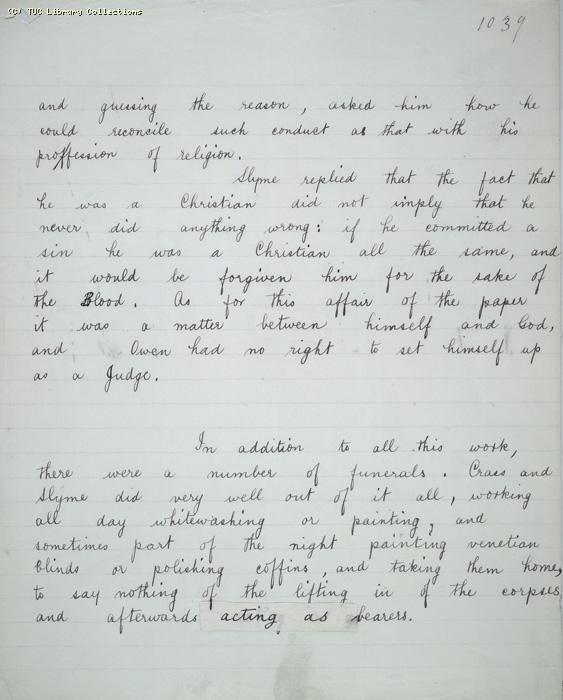 (C) TUC Library Collections
1039
and guessing the reason, asked him how he
could reconcile such conduct as that with his
proffession of religion.
Slyme replied that the fact that
he was a Christian did not imply that he
never did anything wrong: if he committed a
sin he was a Christian all the same, and
it would be forgiven him for the sake of
the Blood. As for this affair of the paper
it was a matter between himself and God,
and Owen had no right to set himself up
as a Judge.
In addition to all this work,
there were a number of funerals. Crass and
Slyme did very well out of it all, working
all day whitewashing or painting, and
sometimes part of the night painting venetian
blinds or polishing coffins, and taking them home,
to say nothing of the lifting in of the corpses
and afterwards acting as bearers.